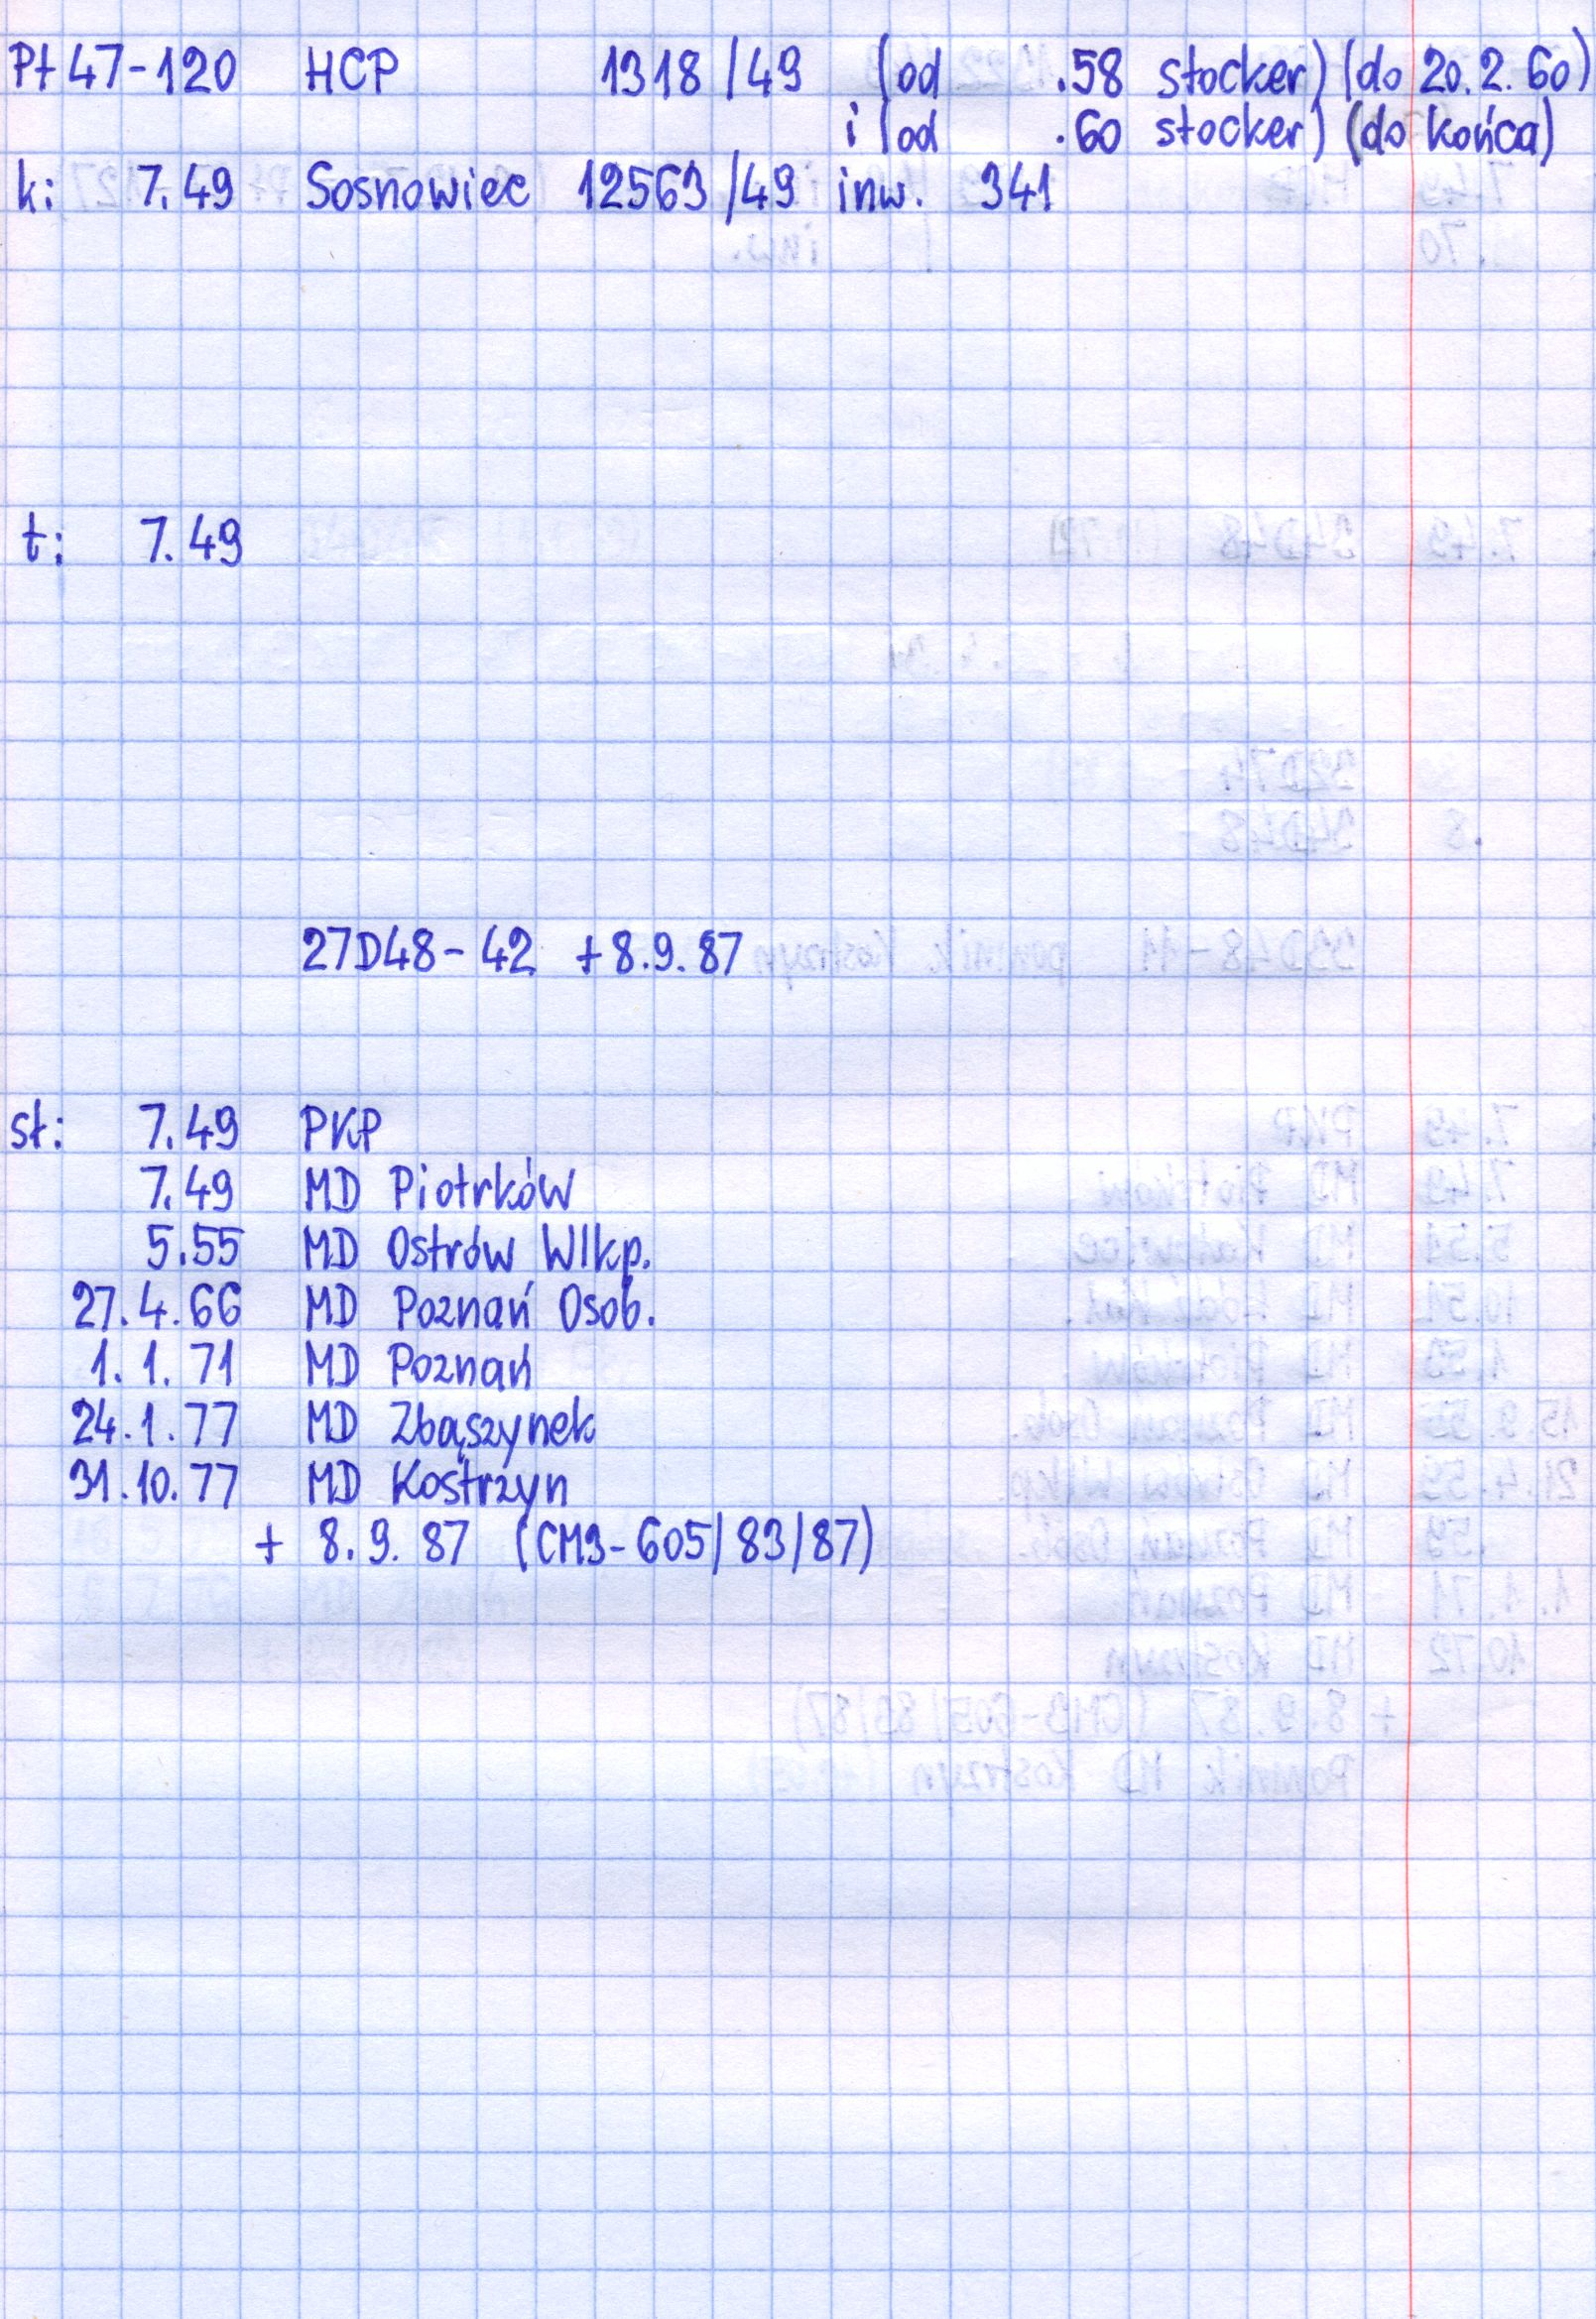 Pt47-120 HCP 1318/49 (od .58 stocker) (do 20.2.60)
i (od .60 stocker) (do końca)
k: 7.49 Sosnowiec 12563/49 inw. 341
t: 7.49
27D48-42 +8.9.87
sł: 7.49 PKP
7.49 MD Piotrków
5.55 MD Ostrów Wlkp.
27.4.66 MD Poznań Osob.
1.1.71 MD Poznań
24.1.77 MD Zbąszynek
31.10.77 MD Kostrzyn
+ 8.9.87 (CM3-605/83/87)